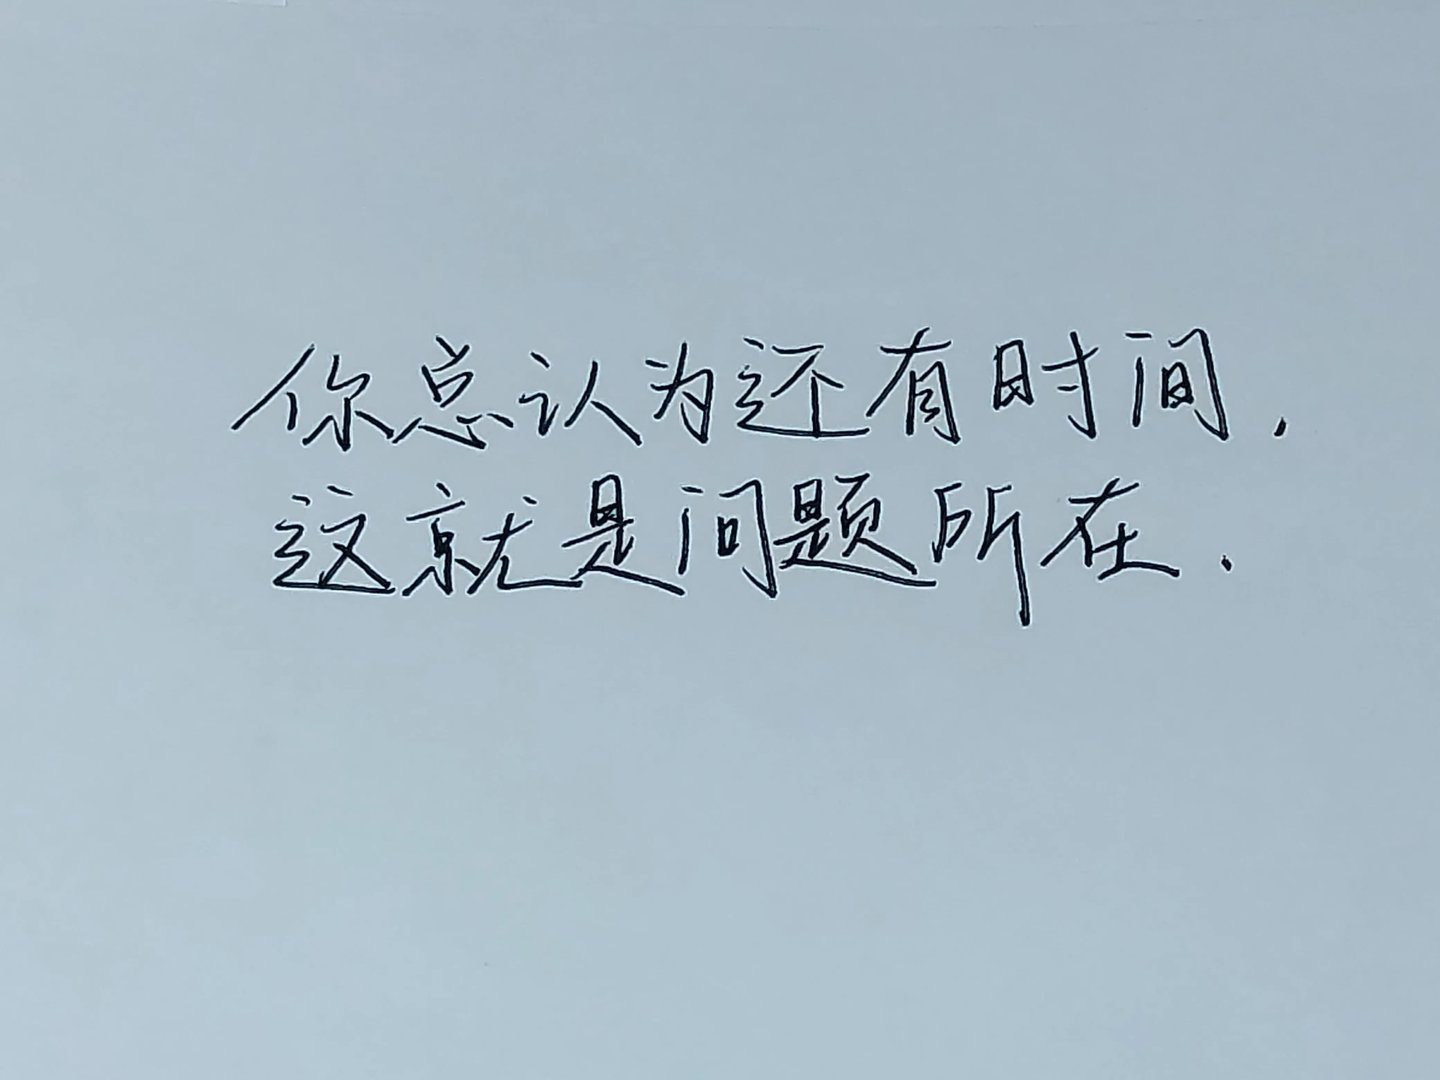 你总认为还有时间，
这就是问题所在.